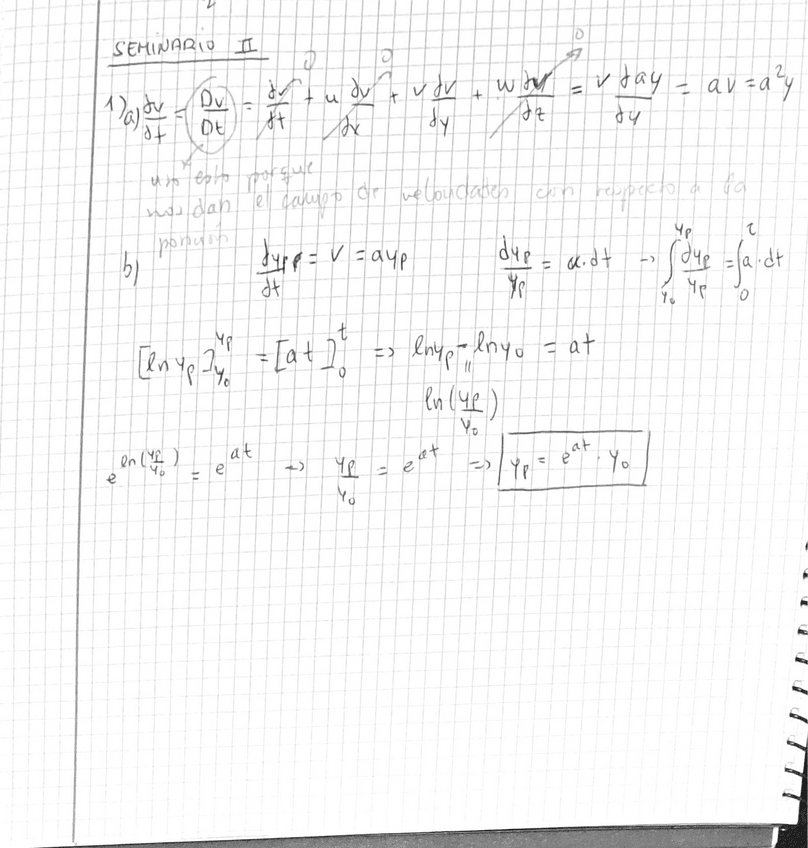 2
SEMINARIO II
1) a) dv/dt = Dv/Dt = dv/dt + u dv/dx + v dv/dy + w dv/dz = v day/dy = av = a²y
0 0 0
uso esto porque
nos dan el campo de velocidades con respecto a la
posición
b) dyp/dt = v = ayp dyp/yp = a·dt → ∫_{y₀}^{yp} dyp/yp = ∫_0^t a·dt
[ln yp]_{y₀}^{yp} = [at]_0^t => lnyp - lny₀ = at
ln(yp/y₀)
e^{ln(yp/y₀)} = e^{at} => yp/y₀ = e^{at} => yp = e^{at} · y₀